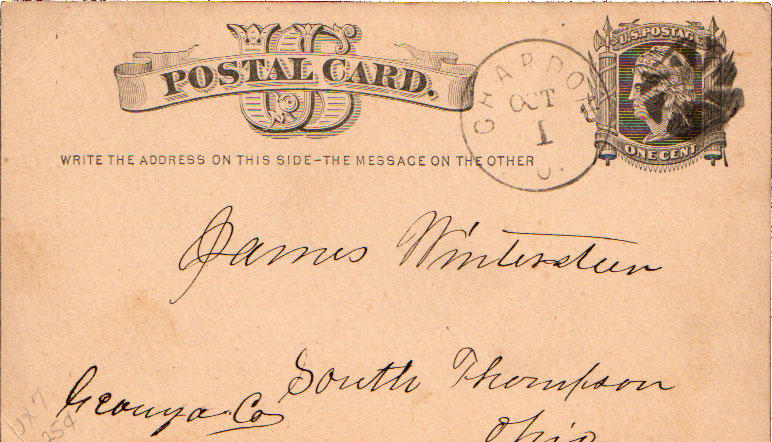 US
POSTAL CARD.
U.S. POSTAGE
ONE CENT
CHARDON
OCT
1
O.
WRITE THE ADDRESS ON THIS SIDE–THE MESSAGE ON THE OTHER
James Wintersteen
South Thompson
Geauga Co
Ohio
UX7
254